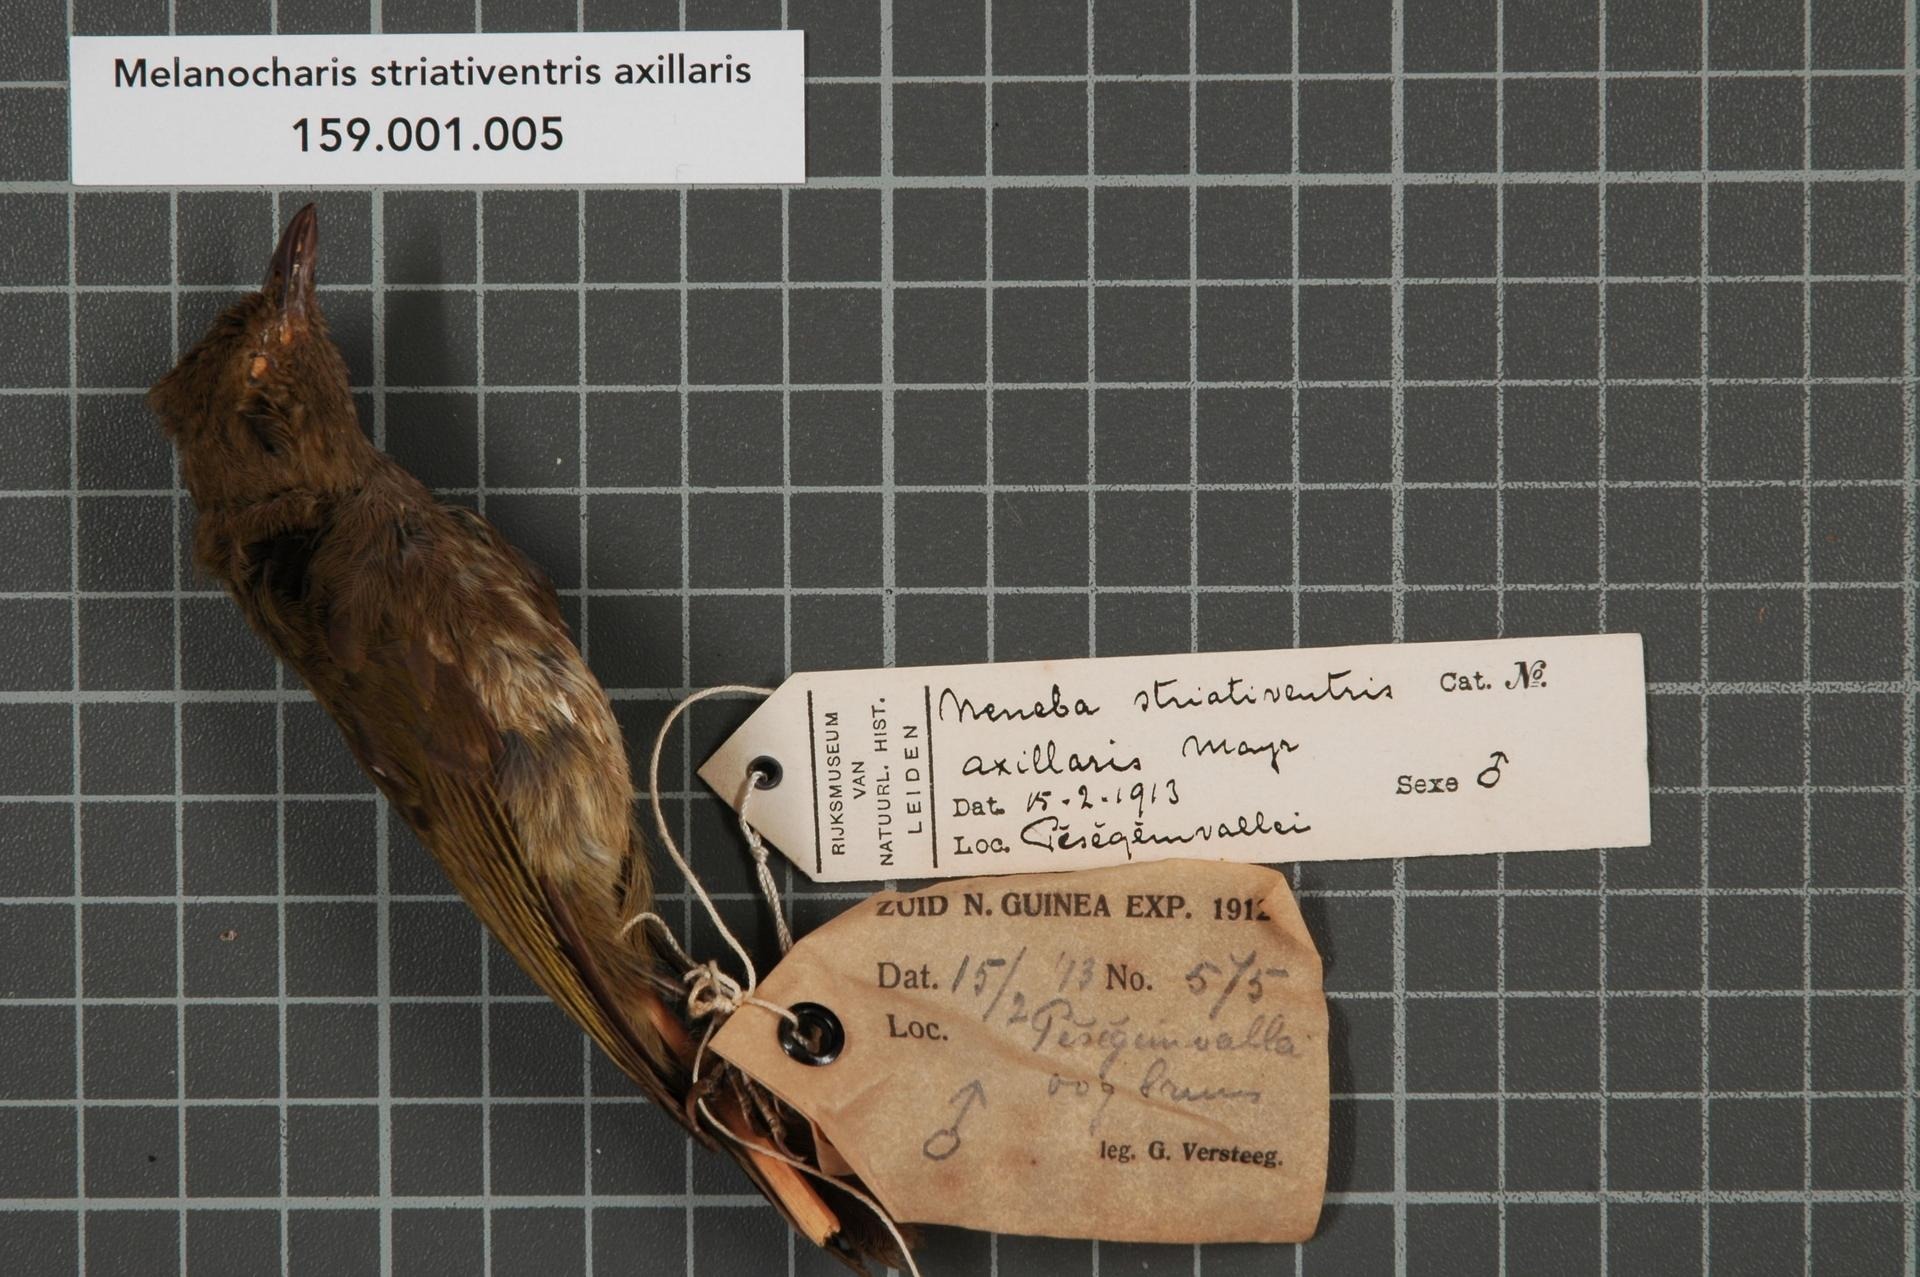 Melanocharis striativentris axillaris
159.001.005
RIJKSMUSEUM
VAN
NATUURL. HIST.
LEIDEN
Neneba striativentris Cat. No.
axillaris Mayr
Dat. 15-2-1913 Sexe ♂
Loc. Pĕsĕgĕmvallei
ZUID N. GUINEA EXP. 1912
Dat. 15/2 '13 No. 575
Loc. Pĕsĕgĕmvallei
oog bruin
♂
leg. G. Versteeg.